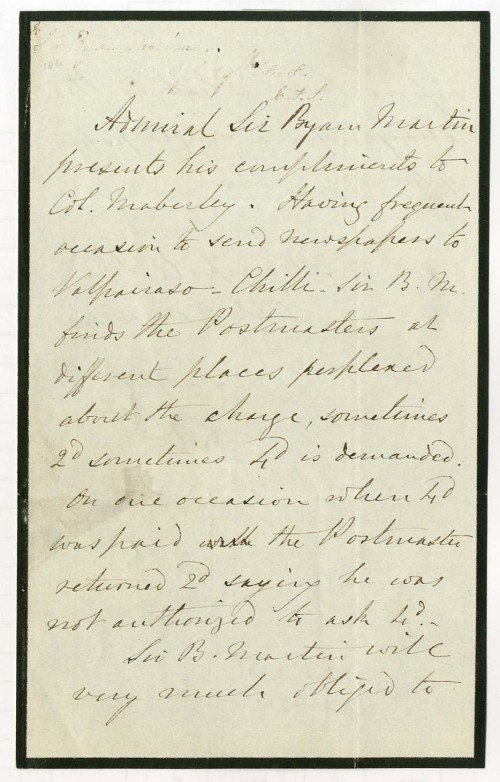 Admiral Sir Byam Martin
presents his compliments to
Col. Maberley. Having frequent
occasion to send newspapers to
Valpairaso - Chilli - Sir B. M.
finds the Postmasters at
different places perplexed
about the charge, sometimes
2d sometimes 4d is demanded.
On one occasion when 4d
was paid the Postmaster
returned 2d saying he was
not authorized to ask 4d. -
Sir B. Martin will
very much obliged to